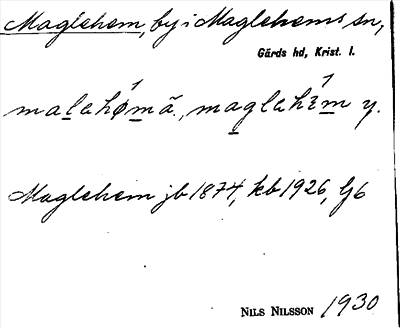 Maglehem, by i Maglehems sn,
Gärds hd, Krist. l.
malehø̱m ä., maglehɛm y.
Maglehem jb 1874, kb 1926, Gj 6
NILS NILSSON 1930